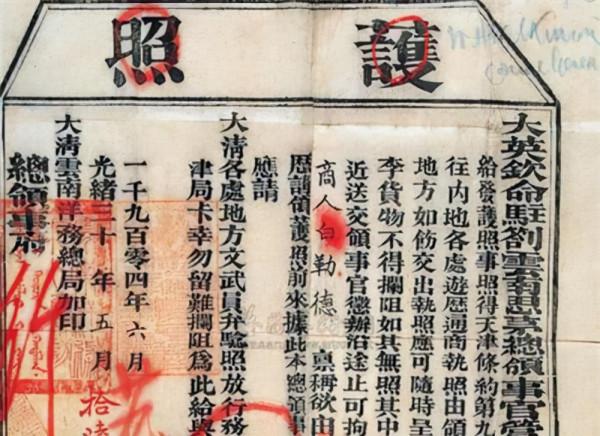 護照
大英欽命駐劄雲南思茅總領事官
給發護照事照得天津條約第九
往內地各處遊歷通商執照由領
地方如飭交出執照應可隨時呈
李貨物不得攔阻如其無照其中
近送交領事官懲辦沿途止可拘
商人白勒德 稟稱欲由
歷請領護照前來據此本總領事
應請
大清各處地方文武員弁驗照放行務
津局卡幸勿留難攔阻爲此給與
一千九百零四年六月
光緒三十年五月拾陸
大清雲南洋務總局加印
總領事府